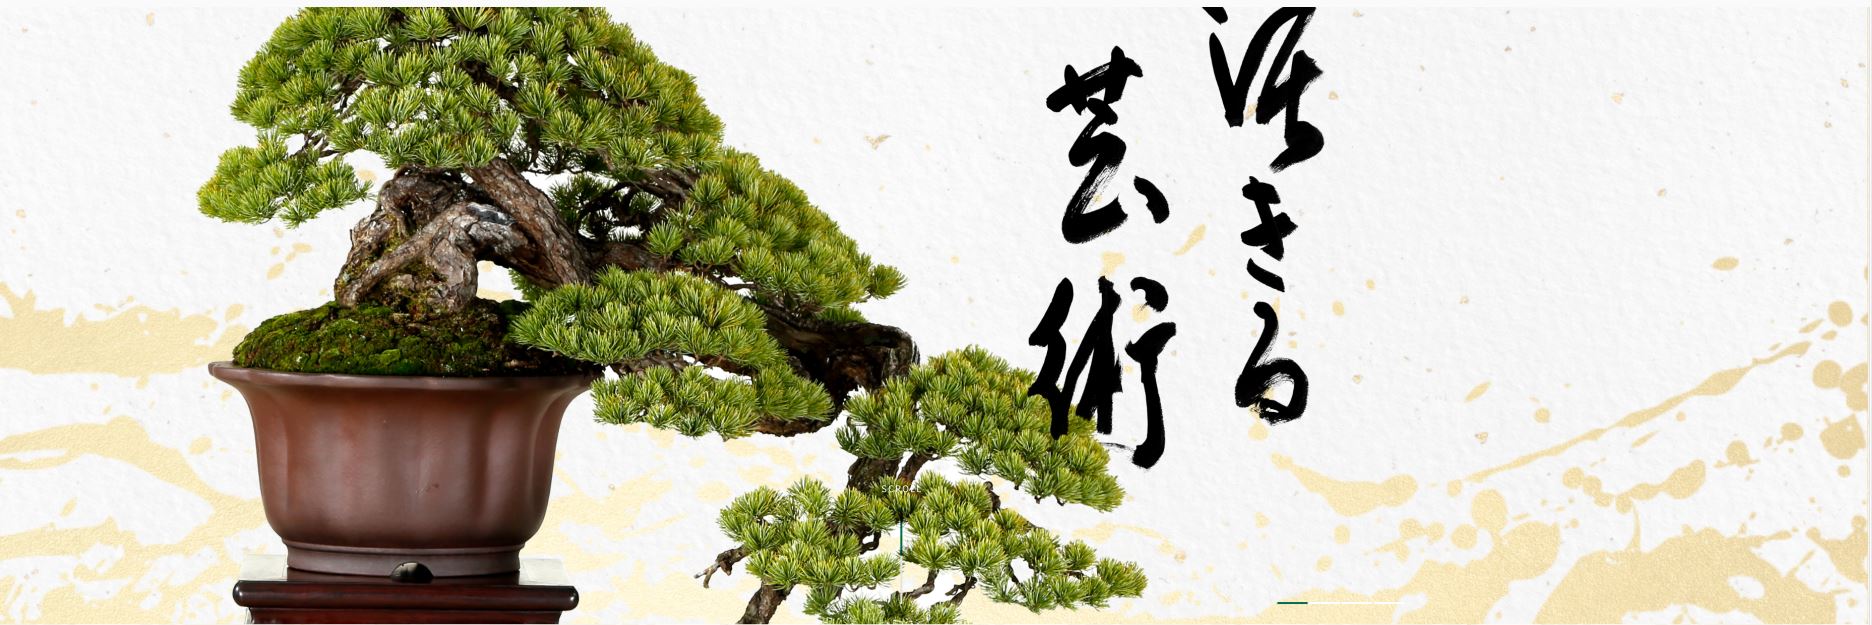 活きる
芸術
SCROLL